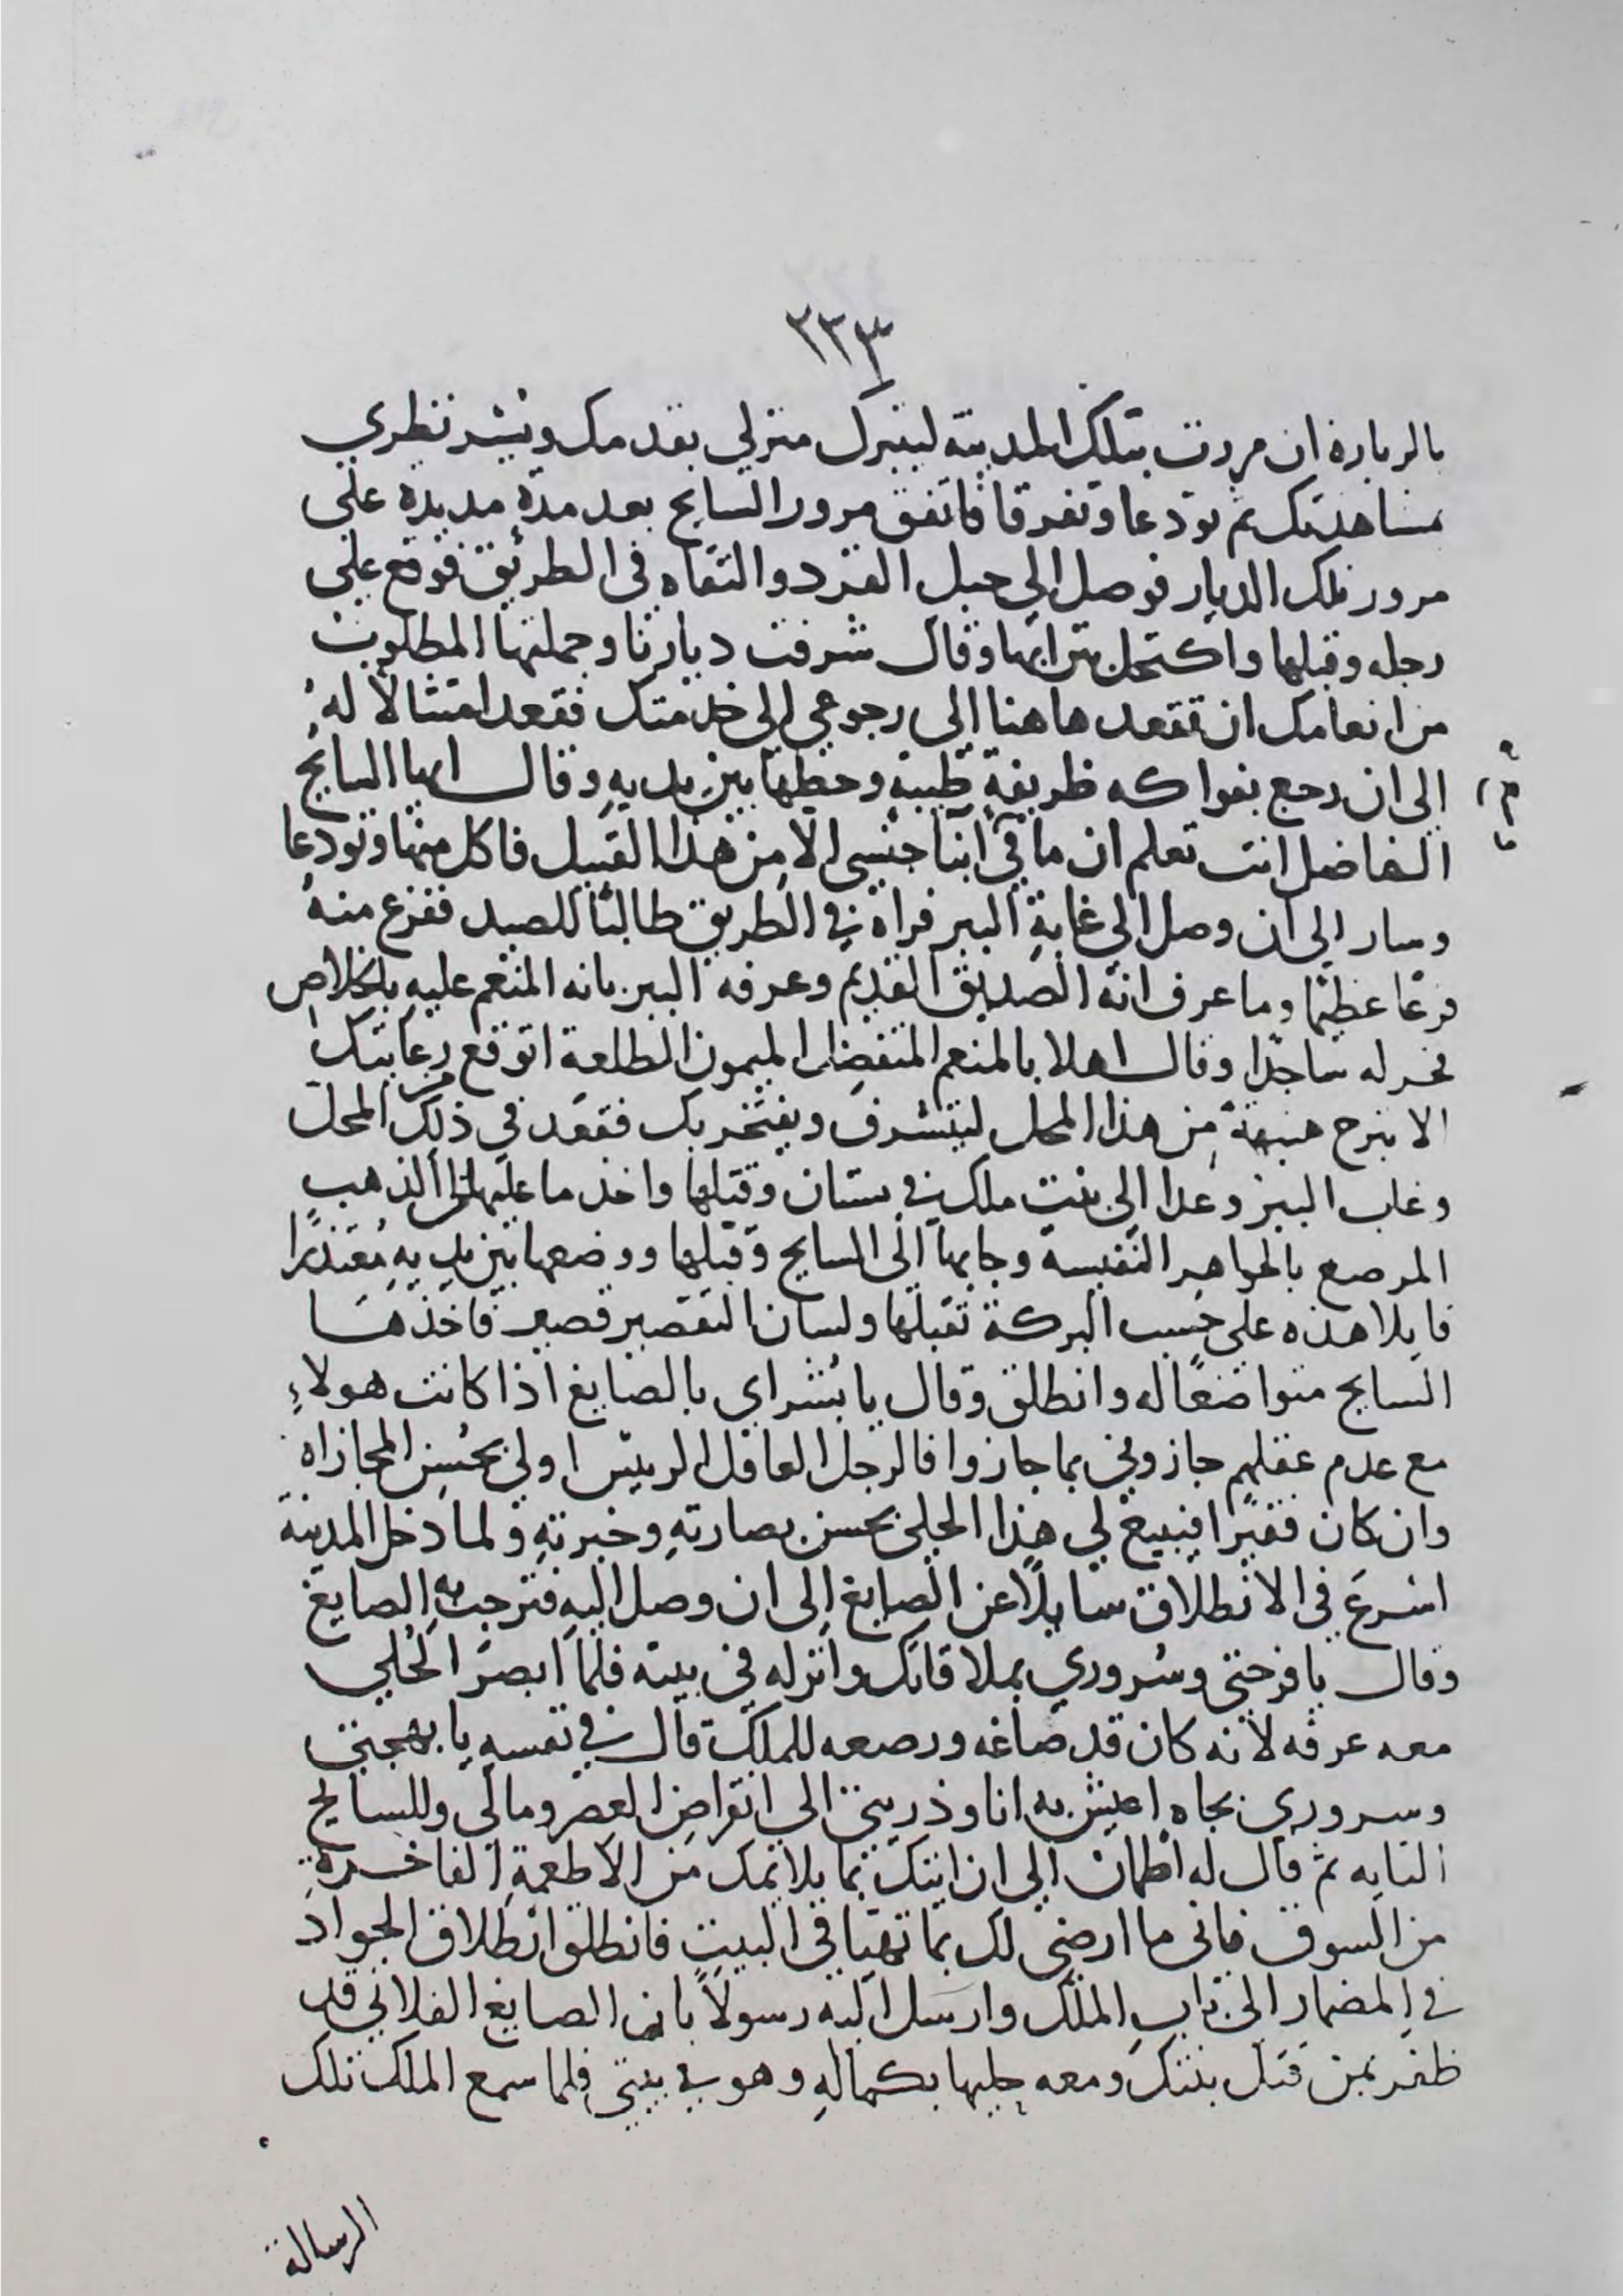 ٢٣٣
بالزياره ان مررت بتلك المدينه ليتبرك منزلي بقدمك ويتشرف نظري
بمشاهدتك ثم تودعا وتفرقا فاتفق مرور السايح بعد مدة مديدة على
مرور تلك الديار فوصل الى جبل القرد والتقاه في الطريق فوقع على
رجله وقبلها واكتحل بترابها وقال شرفت ديارنا وجملتها المطلوب
من انعامك ان تقعد هاهنا الى رجوعي الى خدمتك فقعد امتثالاً لهُ
الى ان رجع بفواكه ظريفةٍ طيبةٍ وحطها بين يديهِ وقال ايها السايح
الفاضل انت تعلم ان ما في ابنا جنسي الا من هذا القبيل فاكل منها وتودعا
وسار الى ان وصل الى غابةِ الببر فراه في الطريق طالبًا للصيد ففزع منهُ
فزعًا عظيمًا وما عرف انه الصديق القديم وعرفه الببر بانه المنعم عليهِ بالخلاص
فخر له ساجدًا وقال اهلا بالمنعم المتفضل الميمون الطلعة اتوقع رعايتك
الا تبرح هنيهةً من هذا المحل ليتشرف ويفتخر بك فقعد في ذلك المحل
وغاب الببر وعدا الى بنت ملك في بستان وقتلها واخذ ما عليها من الذهب
المرصع بالجواهر النفيسه وجابها الى السايح وقبلها ووضعها بين يديهِ مُعتذرًا
قايلا هذه على حسب البركة تقبلها ولسان التقصير قصير فاخذها
السايح متواضعًا له وانطلق وقال يا بُشراي بالصايغ اذا كانت هولاءِ
مع عدم عقلهم جازوني بما جازوا فالرجل العاقل الرييس اولى بحُسن المجازاه
وان كان فقيرًا فيبيع لي هذا الحلى بحسن بصارتهِ وخبرتهِ ولما دخل المدينة
اسرعَ في الانطلاق سايلاً عن الصايغ الى ان وصل اليهِ فترحب بهِ الصايغ
وقال يا فرحتي وسُروري بملاقاتك وانزله في بيته فلما ابصر الحُلي
معه عرفه لانه كان قد صاغه ورصعه للملك قال في نفسهِ يا بهجتي
وسروري بجاه اعيش به انا وذريتي الى انقراض العصر ومالي وللسايح
التايه ثم قال له اطمان الى ان اتيك بما يلايمك من الاطعمةِ الفاخرةِ
من السوق فاني ما ارضى لك بما تهيا في البيتِ فانطلق انطلاق الجواد
في المضمار الى باب الملك وارسل اليه رسولاً بان الصايغ الفلاني قد
ظفر بمن قتل بنتك ومعه حليها بكمالهِ وهو في بيتي فلما سمع الملك تلك
الرسالة